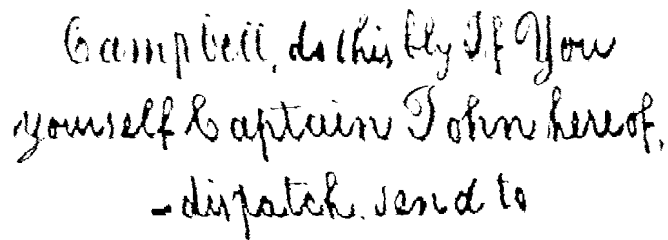 Campbell, do this bly If You
yourself Captain John hereof,
-dispatch. send to